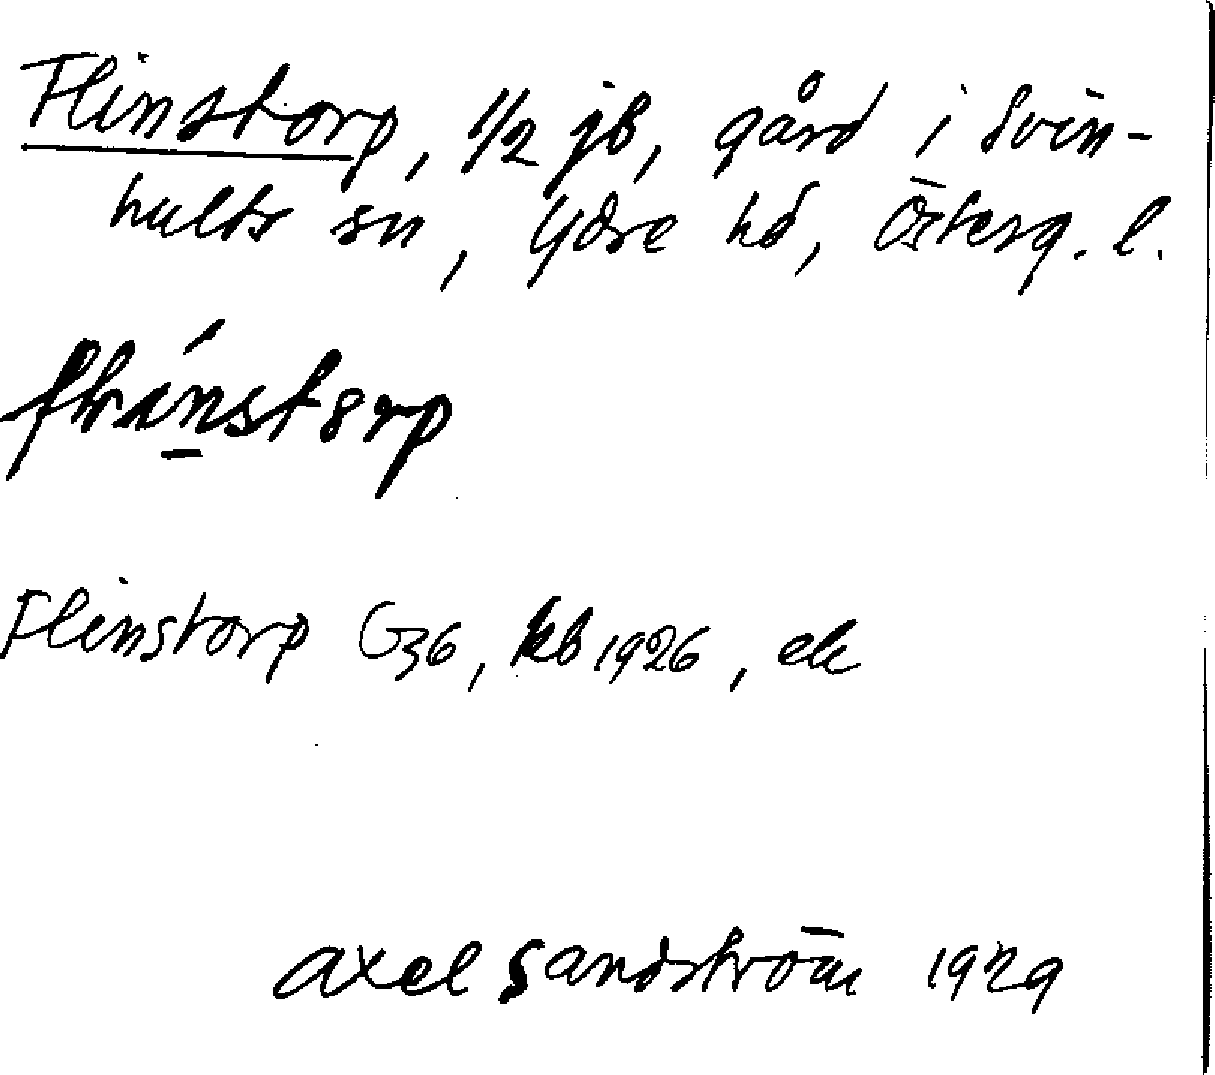 Flinstorp, 1/2 jb, gård i Svin-
hults sn, Ydre hd, Österg. l.
Flinstorp G36, kb 1926, ek
Axel Sandström 1929